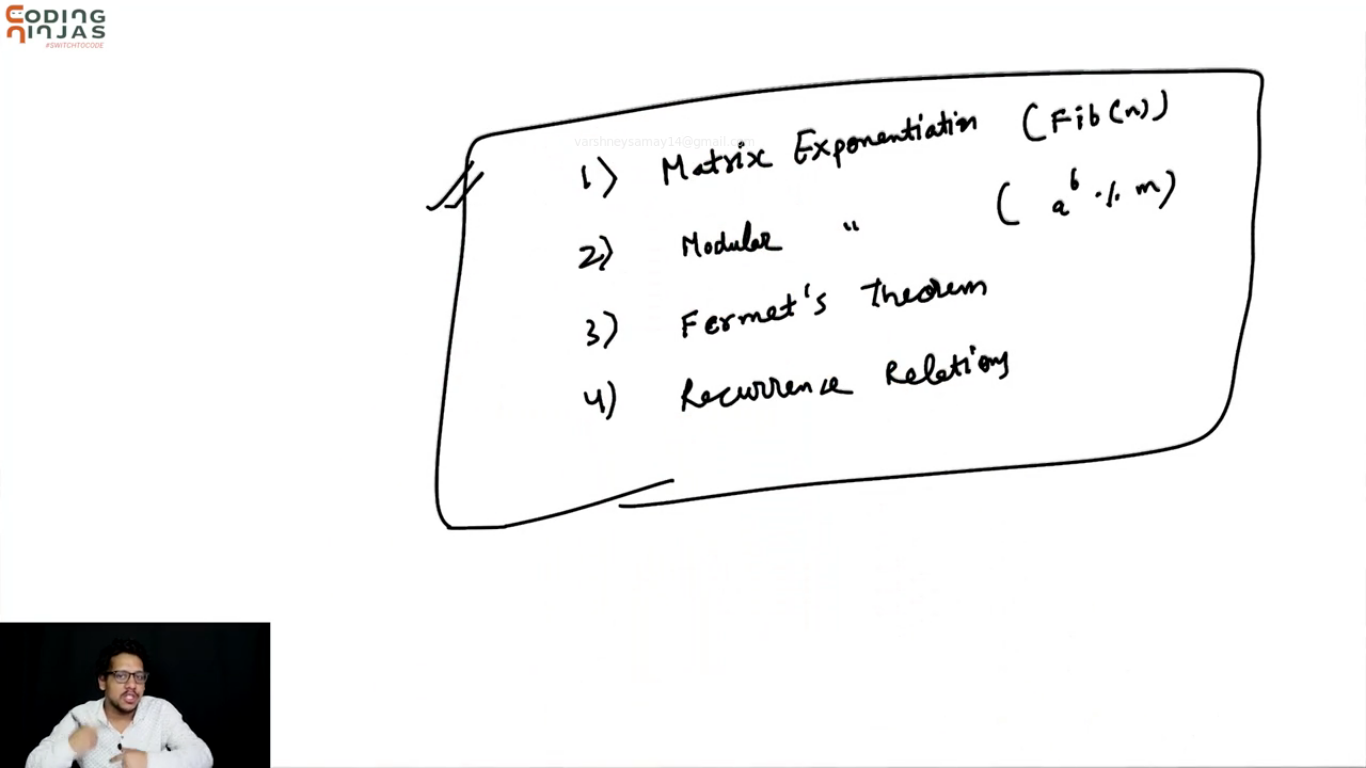 CODING
NINJAS
#SWITCHTOCODE
varshneysamay14@gmail.com
1) Matrix Exponentiation (Fib(n))
2) Modular " (a^b % m)
3) Fermet's Theorem
4) Recurrence Relations